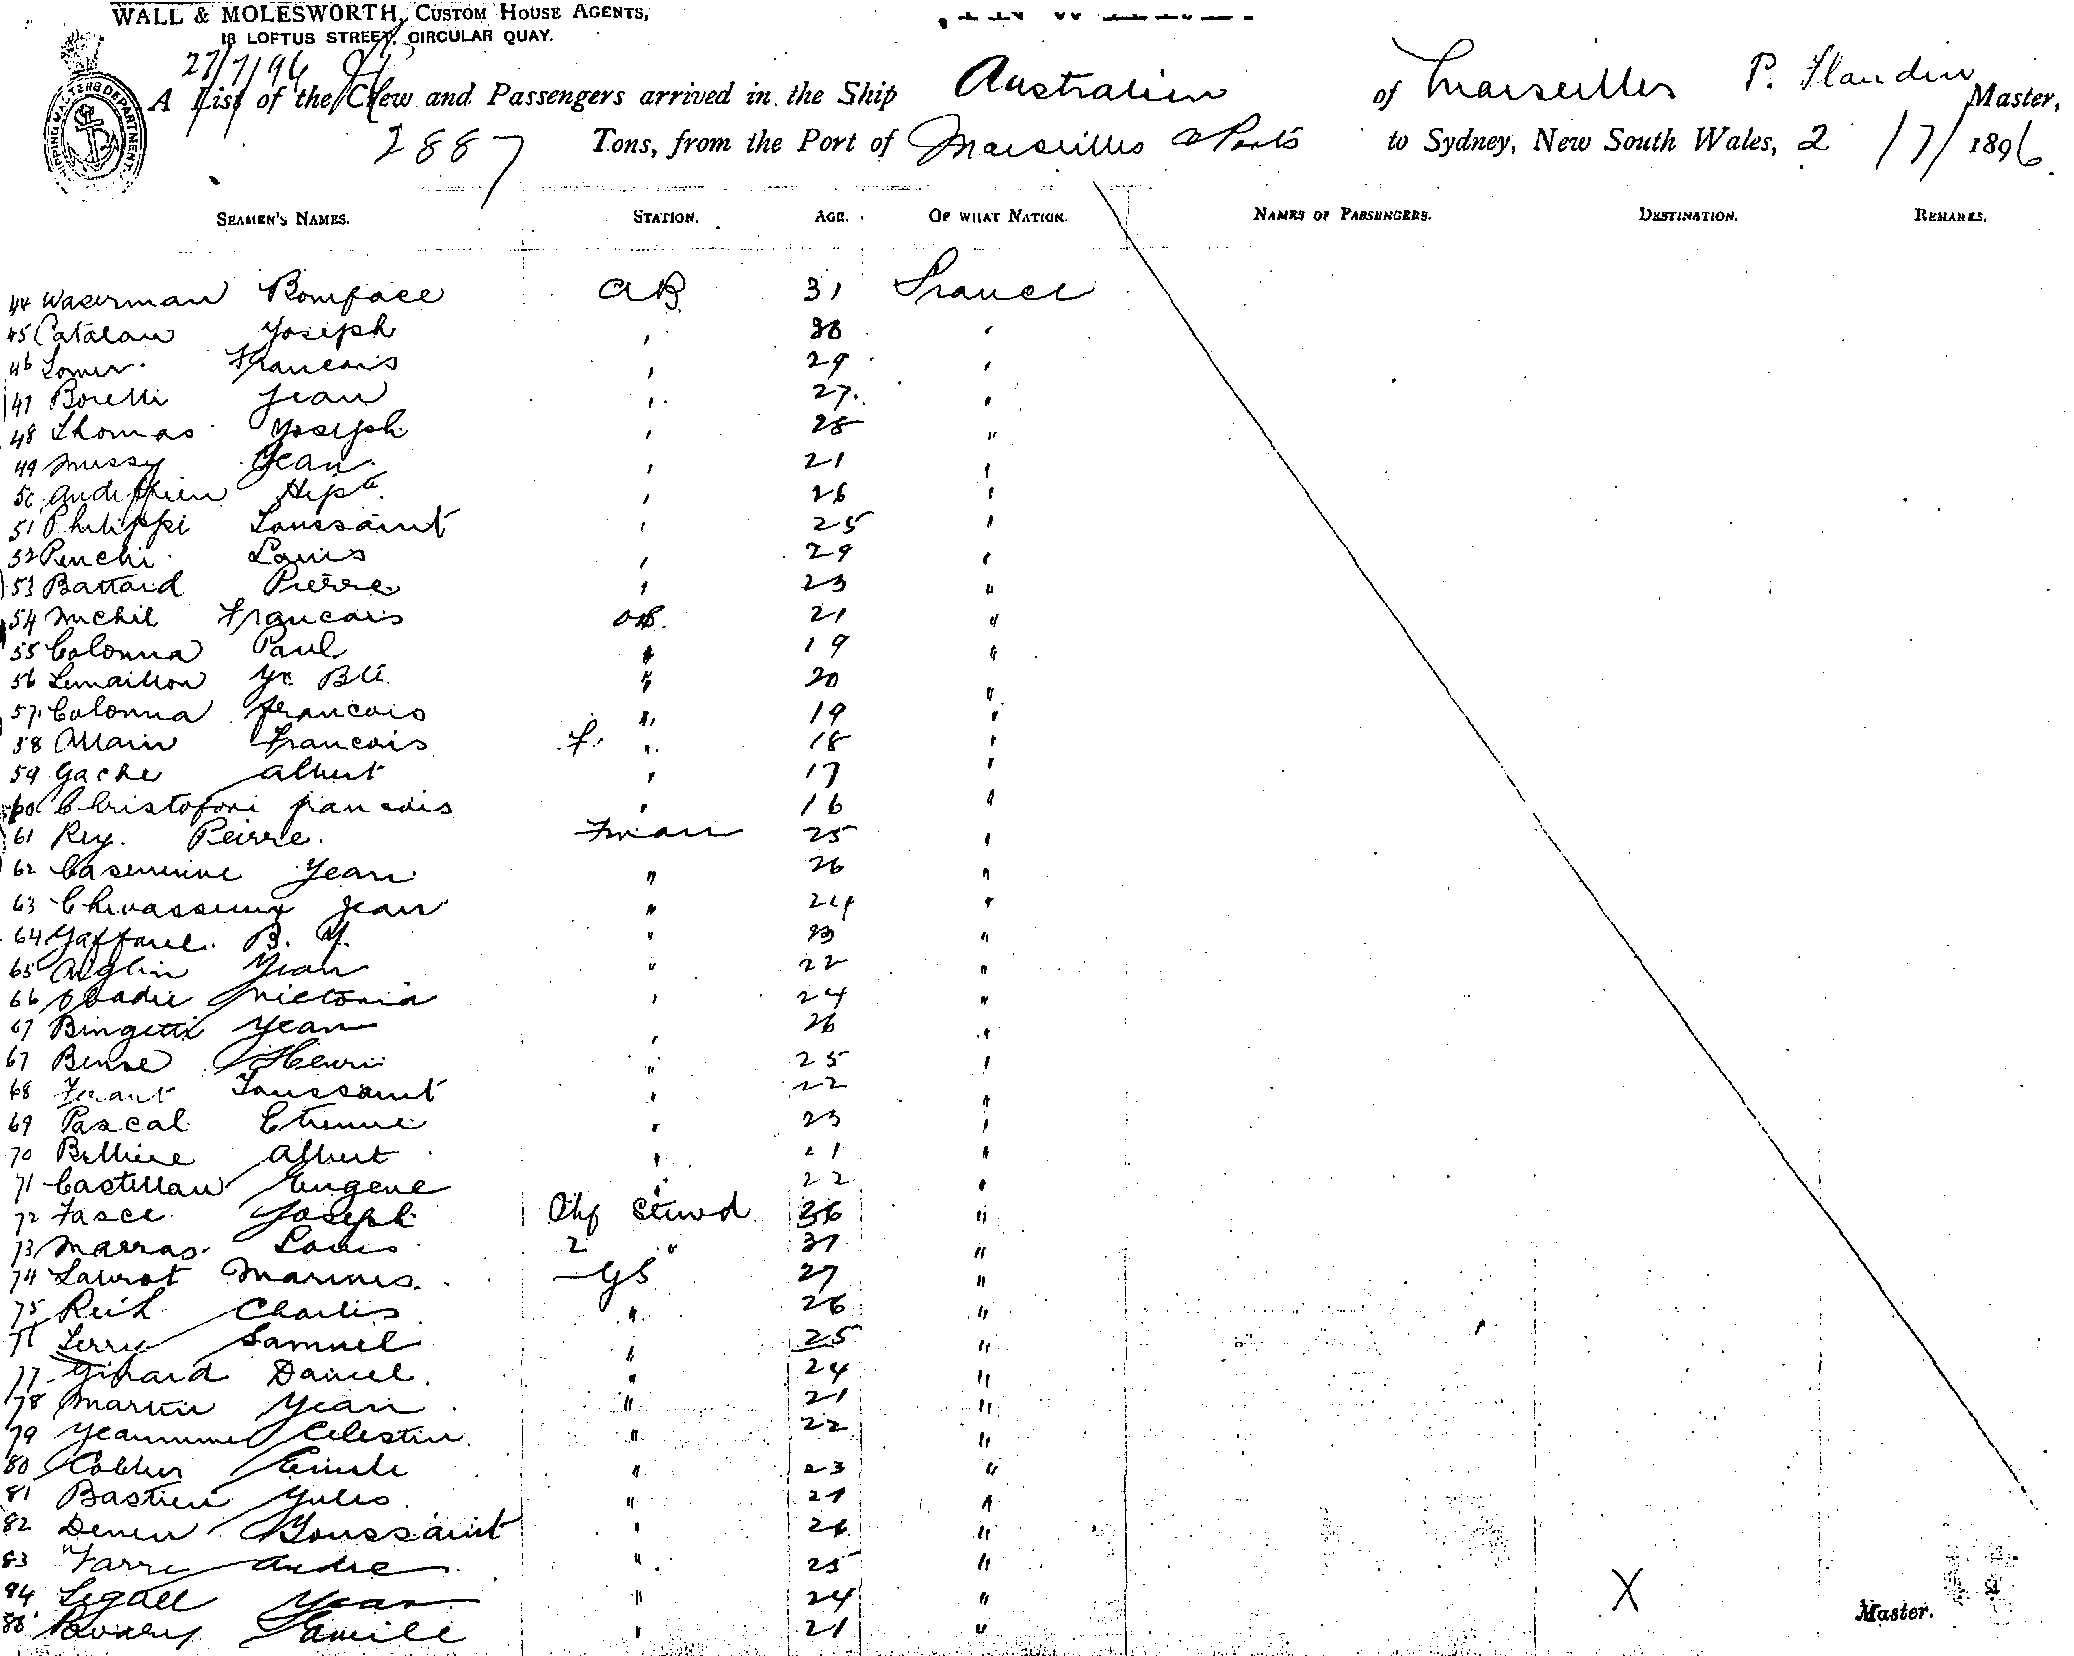 WALL & MOLESWORTH, CUSTOM HOUSE AGENTS,
18 LOFTUS STREET, CIRCULAR QUAY.
27/7/96
A List of the Crew and Passengers arrived in the Ship Australien of Marseilles P. Flandin Master,
2887 Tons, from the Port of Marseilles & Ports to Sydney, New South Wales, 2 /7/ 1896.
SEAMEN'S NAMES. STATION. AGE. OF WHAT NATION. NAMES OF PASSENGERS. DESTINATION. REMARKS.
44 Waserman Boniface AB 31 France
45 Catalan Joseph 30 "
46 Francois " 29 "
47 Borelli Jean " 27 "
48 Thomas Joseph " 28 "
49 Mussy Jean " 21 "
50 Hipte " 26 "
51 Philippi Toussaint " 25 "
52 Penchi Louis " 29 "
53 Battard Pierre " 23 "
54 Michel Francois OS. 21 "
55 Colonna Paul " 19 "
56 Lemaillon Jn Bte " 20 "
57 Colonna Francois " 19 "
58 Allain Francois " 18 "
59 Gache Albert " 17 "
60 Christofori francois " 16 "
61 Rey. Peirre. Fman 25 "
62 Jean " 26 "
63 Jean " 24 "
64 Gaffarel. B. J. " 23 "
65 Anglin Jean " 22 "
66 Abadie " 24 "
67 Bingetti Jean " 26 "
67 Henri " 25 "
68 Toussaint " 22 "
69 Pascal Etienne " 23 "
70 Belliere Albert " 21 "
71 Castillan Eugene " 22 "
72 Fasce Joseph Chf Stewd 36 "
73 Marras Louis 2 " 31 "
74 Laurot Marius. GS 27 "
75 Charles " 26 "
76 Samuel " 25 "
77 Girard Daniel. " 24 "
78 Martin Jean " 21 "
79 Jeanmine Celestin " 22 "
80 Emile " 23 "
81 Bastien Jules " 21 "
82 Toussaint " 26 "
83 Farre Andre " 25 "
84 Legall Jean " 24 "
85 " 21 "
X
Master.